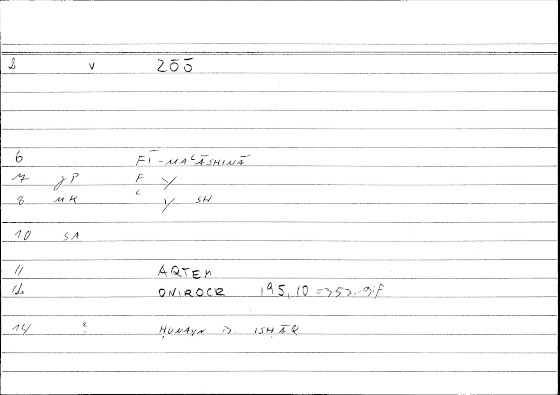 2 V 200
6 FĪ-MAʿĀSHINĀ
7 JP F Y
8 MK ʿ Y SH
10 SA
11 ARTEM
12 ONIROCR 195, 10 => 353.gif
14 ? ḤUNAYN B. ISḤĀQ